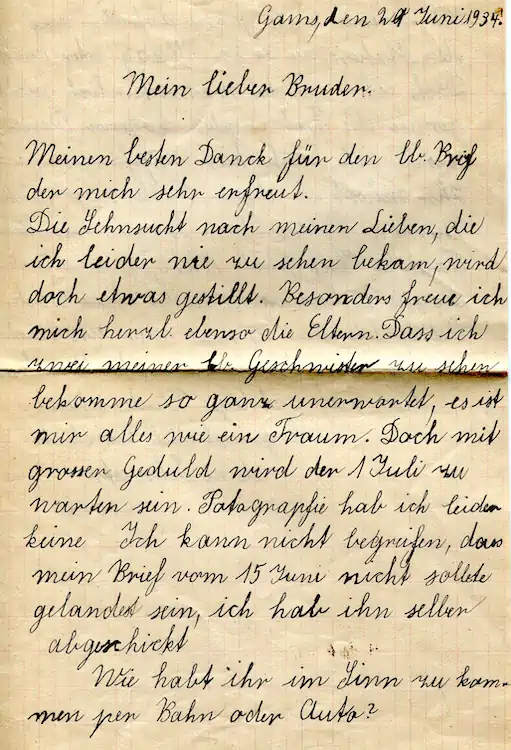 Gams, den 24 Juni 1934.
Mein lieber Bruder.
Meinen besten Danck für den lb. Brief
der mich sehr erfreut.
Die Sehnsucht nach meinen Lieben, die
ich leider nie zu sehen bekam, wird
doch etwas gestillt. Besonders freue ich
mich herzl. ebenso die Eltern. Dass ich
zwei meiner lb. Geschwister zu sehen
bekomme so ganz unerwartet, es ist
mir alles wie ein Traum. Doch mit
grosser Geduld wird der 1 Juli zu
warten sein. Fotographie hab ich leider
keine Ich kann nicht begreifen, dass
mein Brief vom 15 Juni nicht sollete
gelandet sein, ich hab ihn selber
abgeschickt
Wie habt ihr im Sinn zu kom-
men per Bahn oder Auto?